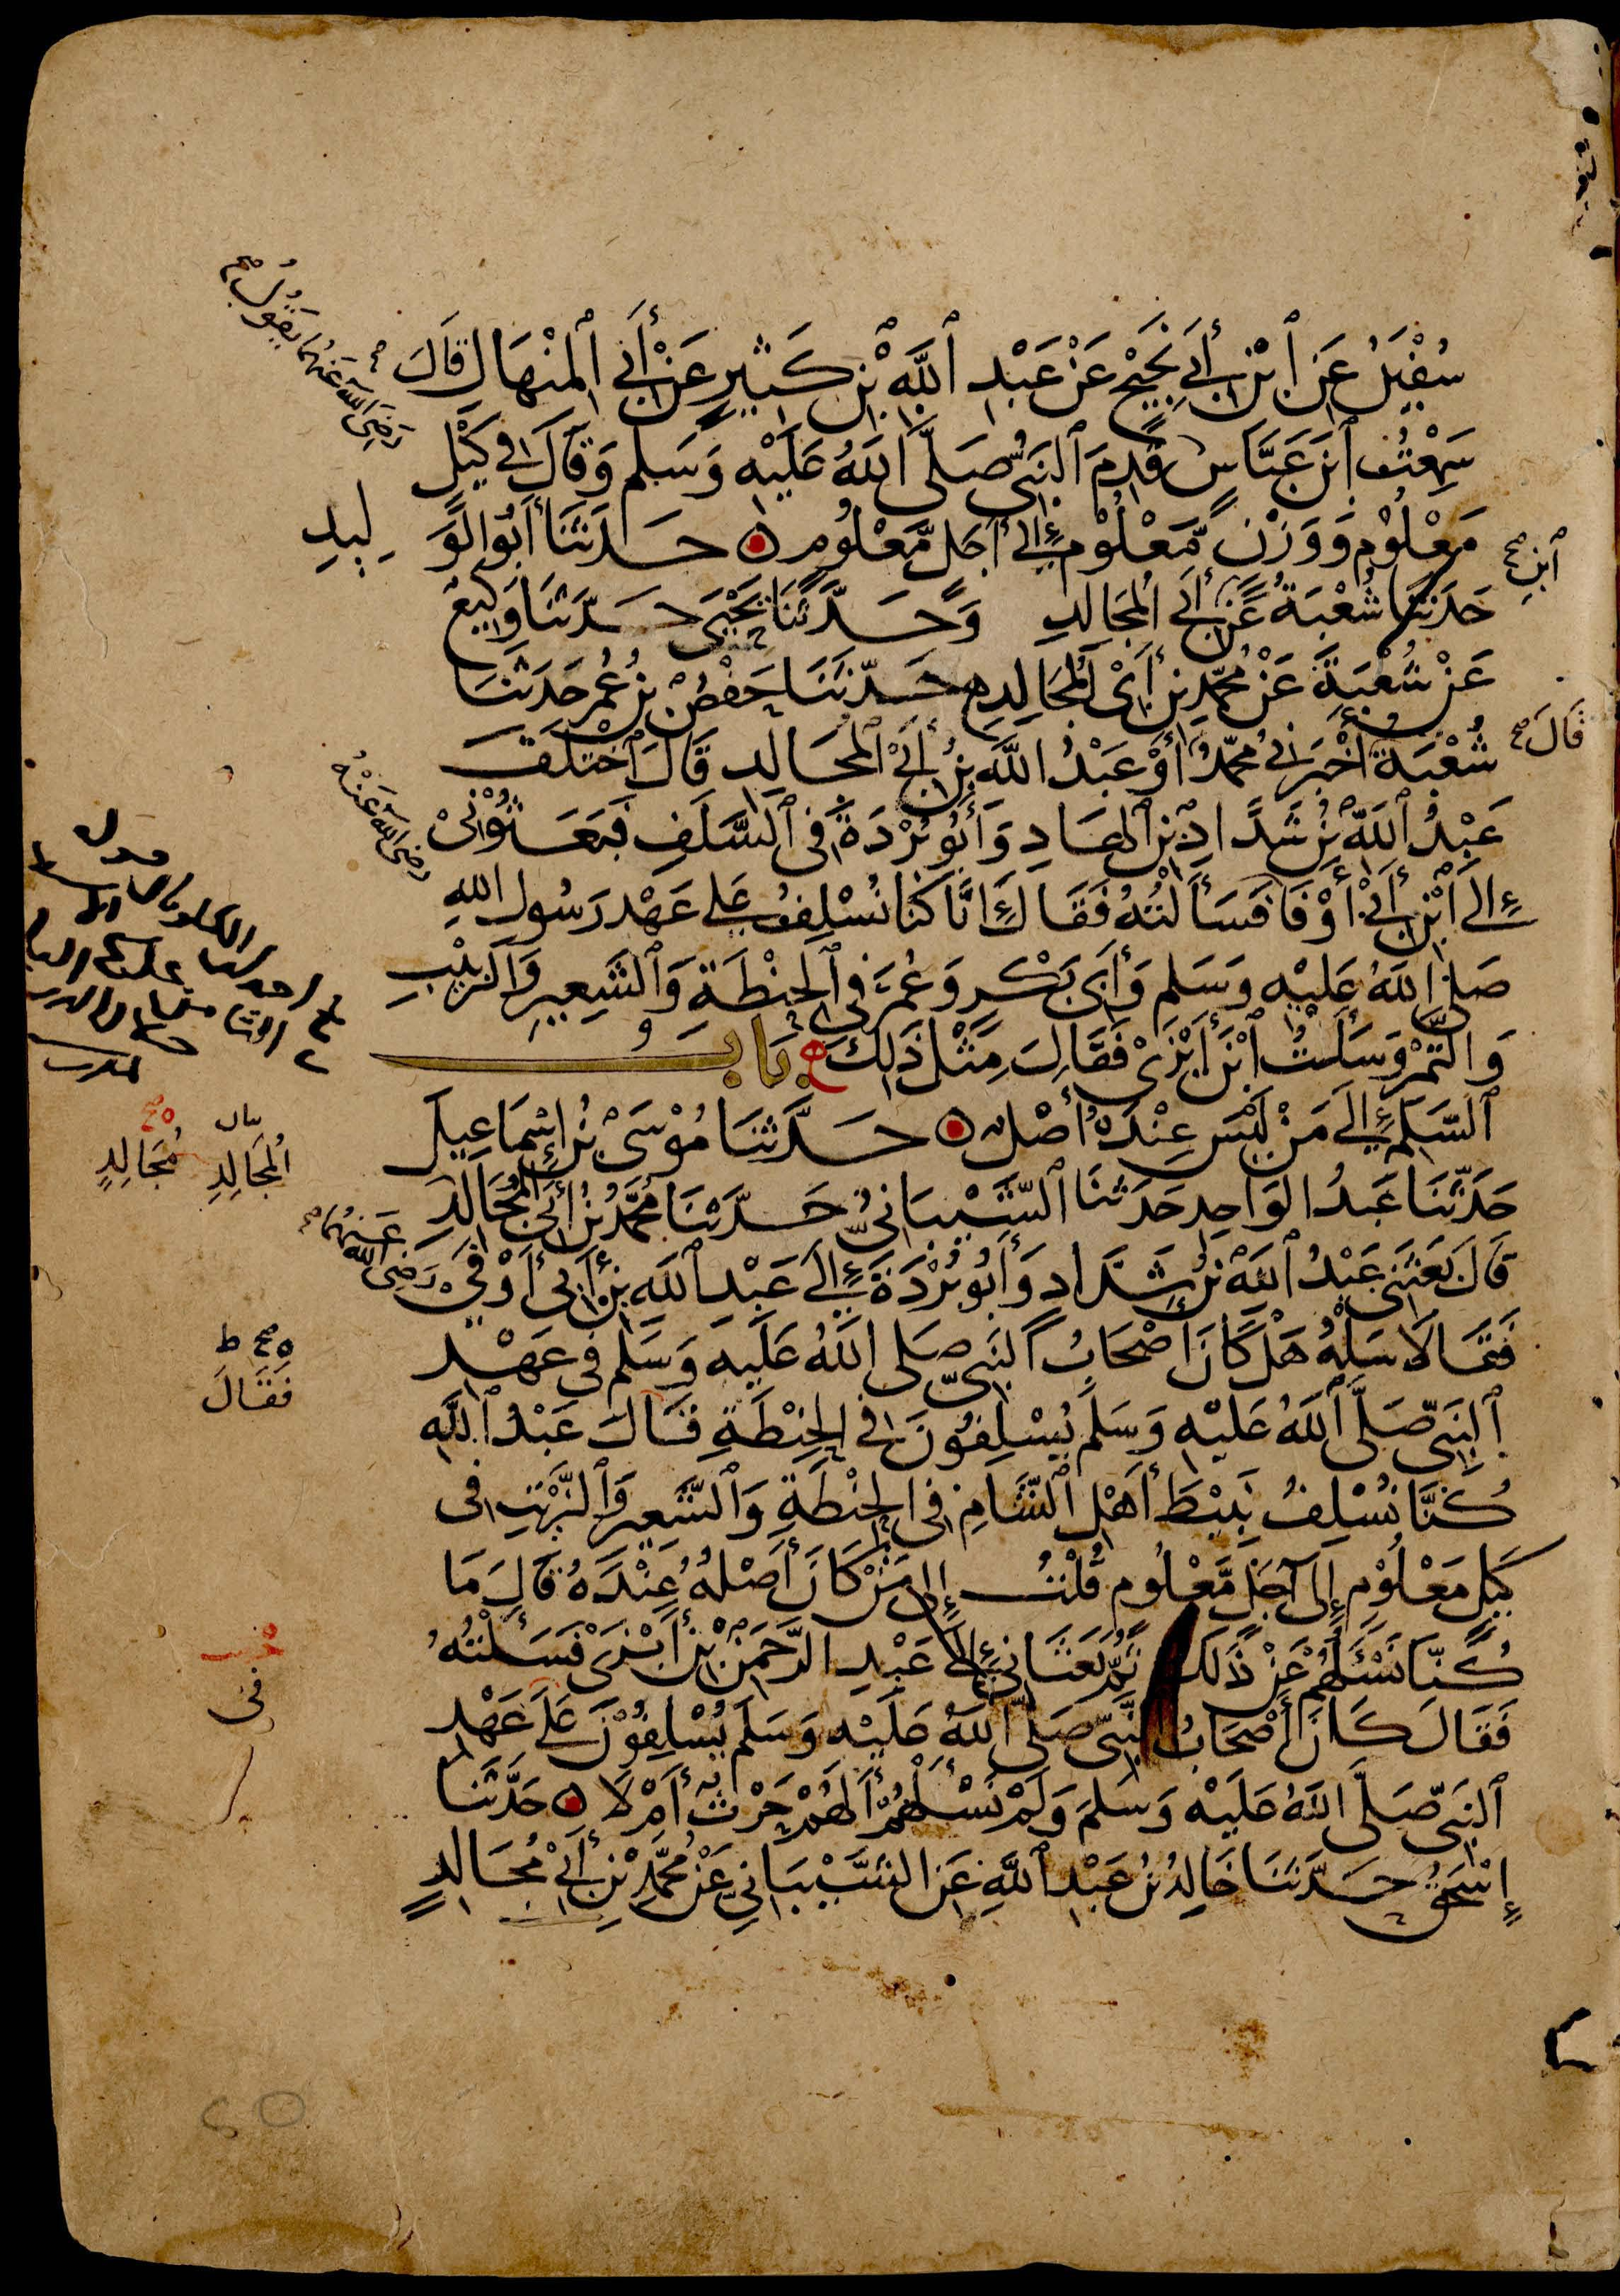 سُفْيَنُ عَنِ ٱبْنِ أَبِي نَجِيحٍ عَنْ عَبْدِ ٱللَّهِ بْنِ كَثِيرٍ عَنْ أَبِي ٱلْمِنْهَالِ قَالَ
سَمِعْتُ ٱبْنَ عَبَّاسٍ قَدِمَ ٱلنَّبِيُّ صَلَّى ٱللَّهُ عَلَيْهِ وَسَلَّم وَقَالَ فِي كَيْلٍ
مَعْلُوْمٍ وَوَزْنٍ مَّعْلُوْمٍ إِلَى أَجَلٍ مَّعْلُوْمٍ حَدَّثَنَا أَبُو الْوَلِيدِ
حَدَّثَنَا شُعْبَةُ عَنِ ابْنِ أَبِي الْمُجَالِدِ وَحَدَّثَنَا يَحْيَى حَدَّثَنَا وَكِيعٌ
عَنْ شُعْبَةَ عَنْ مُحَمَّدِ بْنِ أَبِي الْمُجَالِدِ حَدَّثَنَا حَفْصُ بْنُ عُمَرَ حَدَّثَنَا
شُعْبَةُ قَالَ أَخْبَرَنِي مُحَمَّدٌ أَوْ عَبْدُ اللَّهِ بْنُ أَبِي الْمُجَالِدِ قَالَ ٱخْتَلَفَ
عَبْدُ ٱللَّهِ بْنُ شَدَّادِ بْنِ ٱلْهَادِ وَأَبُو بُرْدَةَ فِي ٱلسَّلَفِ فَبَعَثُوْنِي
إِلَى ٱبْنِ أَبِي أَوْفَا فَسَأَلْتُهُ فَقَالَ إِنَّا كُنَّا نُسْلِفُ عَلَى عَهْدِ رَسُولِ اللهِ
صَلَّى اللَّهُ عَلَيْهِ وَسَلَّم وَأَبِي بَكْرٍ وَعُمَرَ فِي ٱلْحِنْطَةِ وَٱلشَّعِيرِ وَالزَّبِيْبِ
وَالتَّمْرِ وَسَأَلْتُ ٱبْنَ أَبْزَى فَقَالَ مِثْلَ ذَلِكَ بَابُ
ٱلسَّلَمِ إِلَى مَنْ لَيْسَ عِنْدَهُ أَصْلٌ حَدَّثَنَا مُوْسَى بْنُ إِسْمَاعِيلَ
حَدَّثَنَا عَبْدُ الْوَاحِدِ حَدَّثَنَا ٱلشَّيْبَانِيُّ حَدَّثَنَا مُحَمَّدُ بْنُ أَبِي الْمُجَالِدِ
قَالَ بَعَثَنِي عَبْدُ ٱللَّهِ بْنُ شَدَّادٍ وَأَبُو بُرْدَةَ إِلَى عَبْدِ ٱللَّهِ بْنِ أَبِي أَوْفَى
فَقَالَا سَلْهُ هَلْ كَانَ أَصْحَابُ النَّبِيِّ صَلَّى اللَّهُ عَلَيْهِ وَسَلَّم فِي عَهْدِ
ٱلنَّبِيِّ صَلَّى ٱللَّهُ عَلَيْهِ وَسَلَّم يُسْلِفُوْنَ فِي الْحِنْطَةِ قَالَ عَبْدُ ٱللَّهِ
كُنَّا نُسْلِفُ نَبِيْطَ أَهْلِ ٱلشَّامِ فِي الْحِنْطَةِ وَٱلشَّعِيرِ وَٱلزَّيْتِ فِي
كَيْلٍ مَعْلُوْمٍ إِلَى أَجَلٍ مَّعْلُومٍ قُلْتُ إِلَى مَنْ كَانَ أَصْلُهُ عِنْدَهُ قَالَ مَا
كُنَّا نَسْئَلُهُمْ عَنْ ذَلِكَ ثُمَّ بَعَثَانِي إِلَى عَبْدِ الرَّحْمَنِ بْنِ أَبْزَى فَسَأَلْتُهُ
فَقَالَ كَانَ أَصْحَابُ النَّبِيِّ صَلَّى اللَّهُ عَلَيْهِ وَسَلَّم يُسْلِفُوْنَ عَلَى عَهْدِ
ٱلنَّبِيِّ صَلَّى اللَّهُ عَلَيْهِ وَسَلَّمَ وَلَمْ نَسْئَلْهُمْ أَلَهُمْ حَرْثٌ أَمْ لَا حَدَّثَنَا
إِسْحَقُ حَدَّثَنَا خَالِدُ بْنُ عَبْدِ ٱللَّهِ عَنِ الشَّيْبَانِيِّ عَنْ مُحَمَّدِ بْنِ أَبِي مُجَالِدٍ
رَضِيَ اللَّهُ عَنْهُمَا يَقُولُ
رضى الله عَنْهُ
الْمُجَالِدِ
مُجَالِدٍ
رَضِيَ الله عَنْهُمَا
فَقَالَ
فى